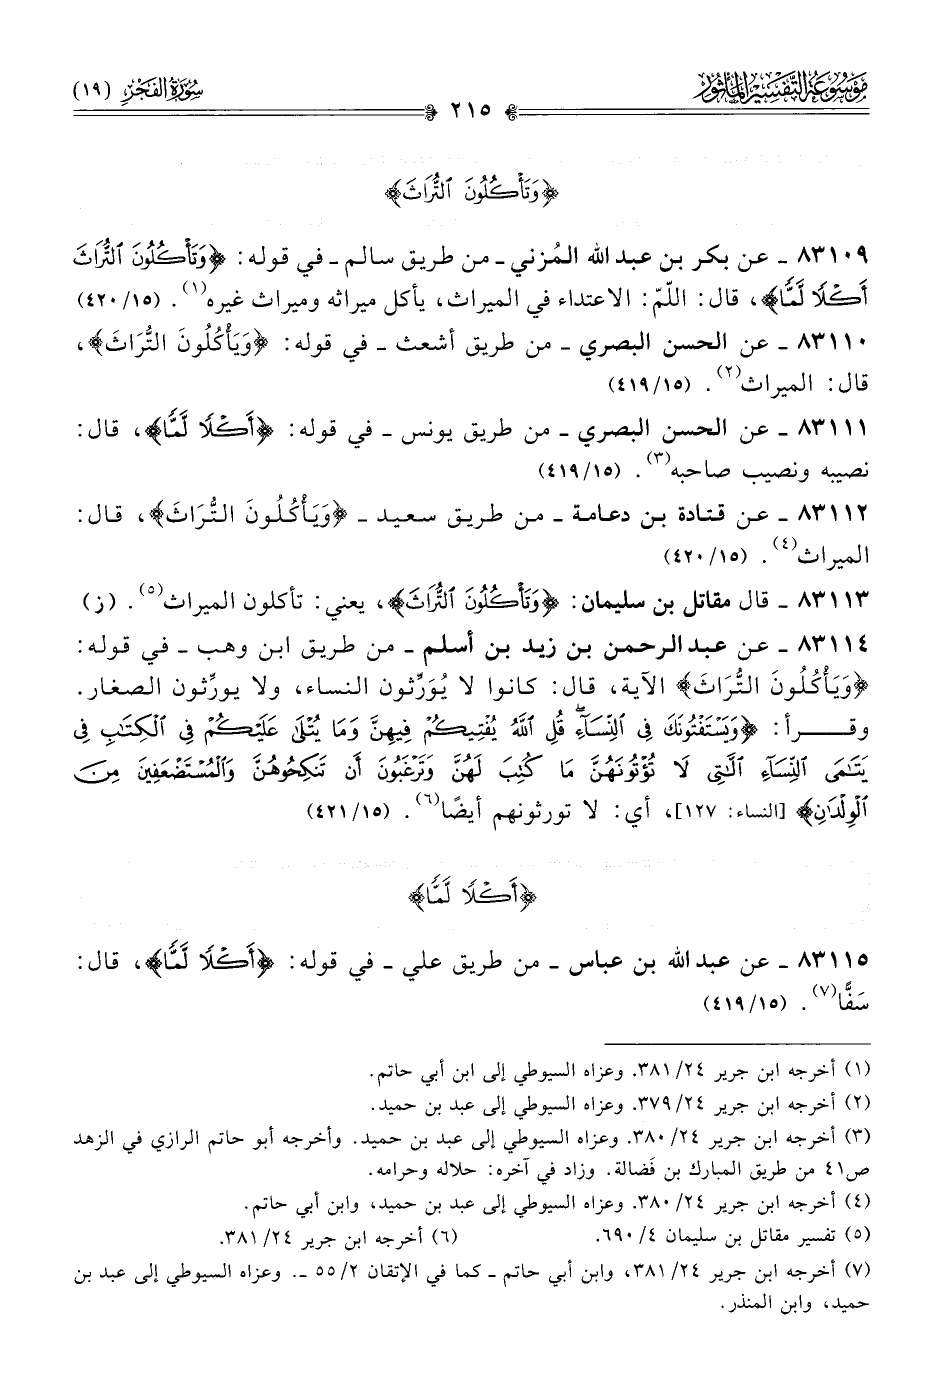 مَوْسُوعَةُ التَّفْسِيرِ المَأْثُور
سُورَةُ الفَجْرِ (١٩)
٢١٥
﴿وَتَأْكُلُونَ ٱلتُّرَاثَ﴾
٨٣١٠٩ ـ عن بكر بن عبد الله المُزني ـ من طريق سالم ـ في قوله: ﴿وَتَأْكُلُونَ ٱلتُّرَاثَ
أَكْلًا لَّمًّا﴾، قال: اللّمّ: الاعتداء في الميراث، يأكل ميراثه وميراث غيره(١). (١٥/٤٢٠)
٨٣١١٠ ـ عن الحسن البصري ـ من طريق أشعث ـ في قوله: ﴿وَيَأْكُلُونَ التُّرَاثَ﴾،
قال: الميراث(٢). (١٥/٤١٩)
٨٣١١١ ـ عن الحسن البصري ـ من طريق يونس ـ في قوله: ﴿أَكْلًا لَّمًّا﴾، قال:
نصيبه ونصيب صاحبه(٣). (١٥/٤١٩)
٨٣١١٢ ـ عن قتادة بن دعامة ـ من طريق سعيد ـ ﴿وَيَأْكُلُونَ التُّرَاثَ﴾، قال:
الميراث(٤). (١٥/٤٢٠)
٨٣١١٣ ـ قال مقاتل بن سليمان: ﴿وَتَأْكُلُونَ ٱلتُّرَاثَ﴾، يعني: تأكلون الميراث(٥). (ز)
٨٣١١٤ ـ عن عبد الرحمن بن زيد بن أسلم ـ من طريق ابن وهب ـ في قوله:
﴿وَيَأْكُلُونَ التُّرَاثَ﴾ الآية، قال: كانوا لا يُوَرِّثون النساء، ولا يورِّثون الصغار.
وقـرأ: ﴿وَيَسْتَفْتُونَكَ فِى ٱلنِّسَآءِ ۖ قُلِ ٱللَّهُ يُفْتِيكُمْ فِيهِنَّ وَمَا يُتْلَىٰ عَلَيْكُمْ فِى ٱلْكِتَٰبِ فِى
يَتَٰمَى ٱلنِّسَآءِ ٱلَّٰتِى لَا تُؤْتُونَهُنَّ مَا كُتِبَ لَهُنَّ وَتَرْغَبُونَ أَن تَنكِحُوهُنَّ وَٱلْمُسْتَضْعَفِينَ مِنَ
ٱلْوِلْدَٰنِ﴾ [النساء: ١٢٧]، أي: لا تورثونهم أيضًا(٦). (١٥/٤٢١)
﴿أَكْلًا لَّمًّا﴾
٨٣١١٥ ـ عن عبد الله بن عباس ـ من طريق علي ـ في قوله: ﴿أَكْلًا لَّمًّا﴾، قال:
سَفًّا(٧). (١٥/٤١٩)
(١) أخرجه ابن جرير ٢٤/٣٨١. وعزاه السيوطي إلى ابن أبي حاتم.
(٢) أخرجه ابن جرير ٢٤/٣٧٩. وعزاه السيوطي إلى عبد بن حميد.
(٣) أخرجه ابن جرير ٢٤/٣٨٠. وعزاه السيوطي إلى عبد بن حميد. وأخرجه أبو حاتم الرازي في الزهد
ص٤١ من طريق المبارك بن فَضالة. وزاد في آخره: حلاله وحرامه.
(٤) أخرجه ابن جرير ٢٤/٣٨٠. وعزاه السيوطي إلى عبد بن حميد، وابن أبي حاتم.
(٥) تفسير مقاتل بن سليمان ٤/٦٩٠.
(٦) أخرجه ابن جرير ٢٤/٣٨١.
(٧) أخرجه ابن جرير ٢٤/٣٨١، وابن أبي حاتم ـ كما في الإتقان ٢/٥٥ ـ. وعزاه السيوطي إلى عبد بن
حميد، وابن المنذر.